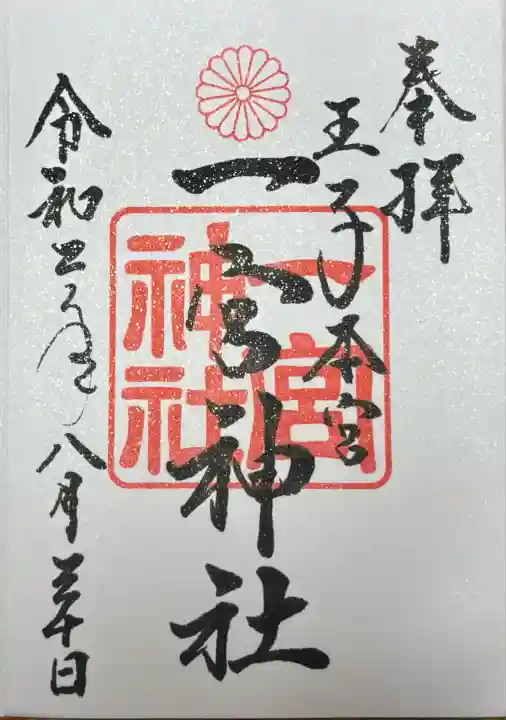 奉拝
王子本宮
一宮神社
一宮
神社
令和年八月日